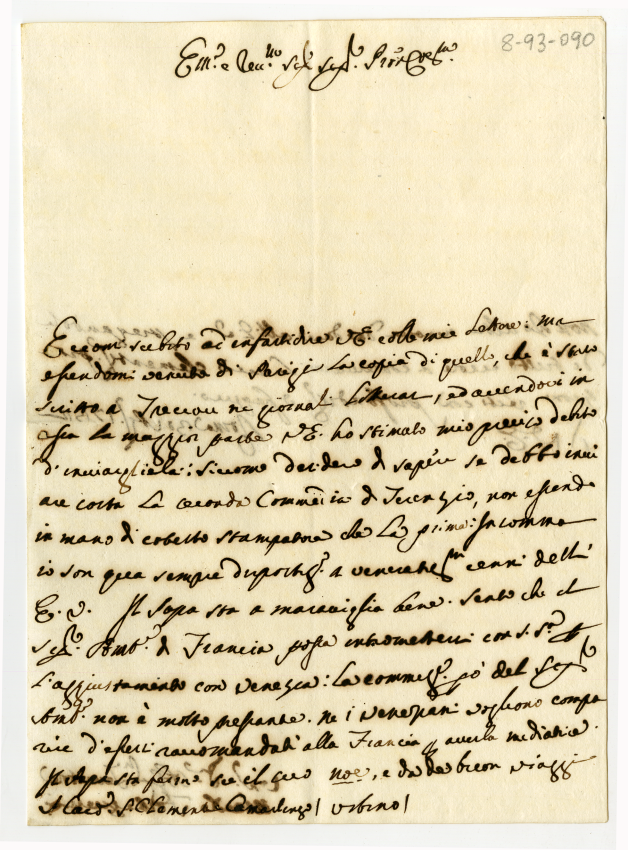 8-93-090
Em.o e Rev.mo Sig.r Sig.r Pron Col.mo
Eccomi subito ad infastidire V.E. colle mie lettere: ma
essendomi venuta di Parigi la copia di quello, che è stato
scritto a Trevou ne giornali letterar, ed avendovi in
essa la maggior parte V.E. ho stimato mio preciso debito
d'inviargliela: siccome desidero di sapere se debbo invi
are costà la seconda Commedia di Terenzio, non essendo
in mano di cotesto stampatore che la prima: Insomma
io son qua sempre disposto a venerat.mi cenni dell'
E.V. Il Papa sta a maraviglia bene. Sento che il
Sig.r Amb.r di Francia possa intromettersi con S. S.tà
l'aggiustamento con Venezia: la commiss. pò del Sig.r
Amb.r non è molto pressante. ne i Veneziani vogliono compa
rire d'essersi raccomandati alla Francia p averla mediatrice.
Il Papa sta fermo su il suo noe, e da da buon viaggi
Card. S. Clemente Camarlingo / Urbino /